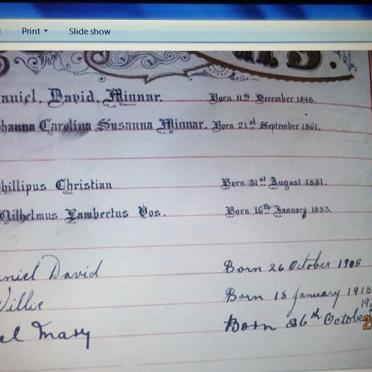 Print Slide show
aniel. David. Minnar. Born 11th December 1846.
ohanna Carolina Susanna Minnar. Born 21st September 1861.
hillipus Christian Born 31st August 1881.
Wilhelmus Lambertus Vos. Born 16th January 1883.
niel David Born 26 October 1906
Willie Born 18 January 1913
el Mary Born 26th October